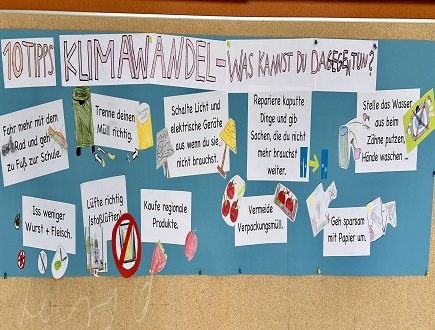 10 TIPPS KLIMAWANDEL - WAS KANNST DU DAGEGEN TUN?
Fahr mehr mit dem
Rad und geh
zu Fuß zur Schule.
Trenne deinen
Müll richtig.
Schalte Licht und
elektrische Geräte
aus wenn du sie
nicht brauchst.
Repariere kaputte
Dinge und gib
Sachen, die du nicht
mehr brauchst
weiter.
Stelle das Wasser
aus beim
Zähne putzen,
Hände waschen ...
Iss weniger
Wurst + Fleisch.
Lüfte richtig
(stoßlüften).
Kaufe regionale
Produkte.
Vermeide
Verpackungsmüll.
Geh sparsam
mit Papier um.